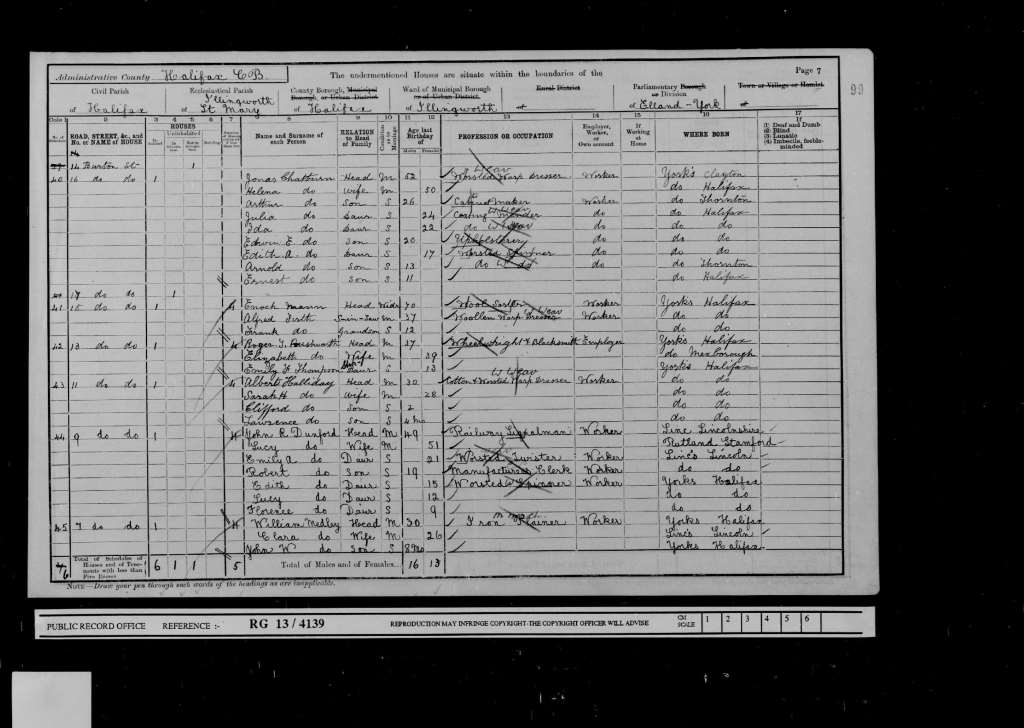 Administrative County Halifax C.B.
The undermentioned Houses are situate within the boundaries of the
Page 7
99
Civil Parish
of Halifax
Ecclesiastical Parish
of Illingworth St Mary
County Borough, Municipal Borough, or Urban District
of Halifax
Ward of Municipal Borough or of Urban District
of Illingworth
Rural District
of
Parliamentary Borough or Division
of Elland-York
Town or Village or Hamlet
of
ROAD, STREET, &c., and No. or NAME of HOUSE
HOUSES
Name and Surname of each Person
RELATION to Head of Family
Age last Birthday of
PROFESSION OR OCCUPATION
Employer, Worker, or Own account
If Working at Home
WHERE BORN
(1) Deaf and Dumb
(2) Blind
(3) Lunatic
(4) Imbecile, feeble-minded
14 Burton St 1
40 16 do do 1 Jonas Chatburn Head M 52 Worsted Warp Dresser Worker Yorks Clayton
Helena do Wife M 50 do Halifax
Arthur do Son S 26 Cabinet Maker Worker do Thornton
Julia do Daur S 24 Coating do do Halifax
Ida do Daur S 22 do do do do
Edwin E. do Son S 20 Upholstery do do do
Edith A. do Daur S 17 Worsted Spinner do do do
Arnold do Son S 13 do do do do Thornton
Ernest do Son S 11 do Halifax
17 do do 1
41 15 do do 1 4 Enoch Mann Head Widr 70 Wool Sorter Worker Yorks Halifax
Alfred Firth Son-in-Law M 37 Woollen Warp Dresser Worker do do
Frank do Grandson S 12 do do
42 13 do do 1 4 Roger T. Head M 37 Wheelwright & Blacksmith Employer Yorks Halifax
Elizabeth do Wife M 39 do Mexborough
Emily F Thompson Daur S 13 Yorks Halifax
43 11 do do 1 4 Albert Halliday Head M 30 Cotton & Worsted Warp Dresser Worker do do
Sarah H do Wife M 28 do do
Clifford do Son S 2 do do
Lawrence do Son S 4 mo do do
44 9 do do 1 4 John R Dunford Head M 49 Railway Signalman Worker Linc Lincolnshire
Lucy do Wife M 51 Rutland Stamford
Emily A do Daur S 21 Worsted Twister Worker Lincs Lincoln
Robert do Son S 19 Manufacturers Clerk Worker do do
Edith do Daur S 15 Worsted Spinner Worker Yorks Halifax
Lucy do Daur S 12 do do
Florence do Daur S 9 do do
45 7 do do 1 4 William Medley Head M 30 Iron Plainer Worker Yorks Halifax
Clara do Wife M 26 Lincs Lincoln
John W do Son S 8 mo Yorks Halifax
Total of Schedules of Houses and of Tenements with less than Five Rooms 6 1 1 5 Total of Males and of Females 16 13
NOTE—Draw your pen through such words of the headings as are inapplicable.
PUBLIC RECORD OFFICE REFERENCE :- RG 13/4139 REPRODUCTION MAY INFRINGE COPYRIGHT-THE COPYRIGHT OFFICER WILL ADVISE CM SCALE 1 2 3 4 5 6